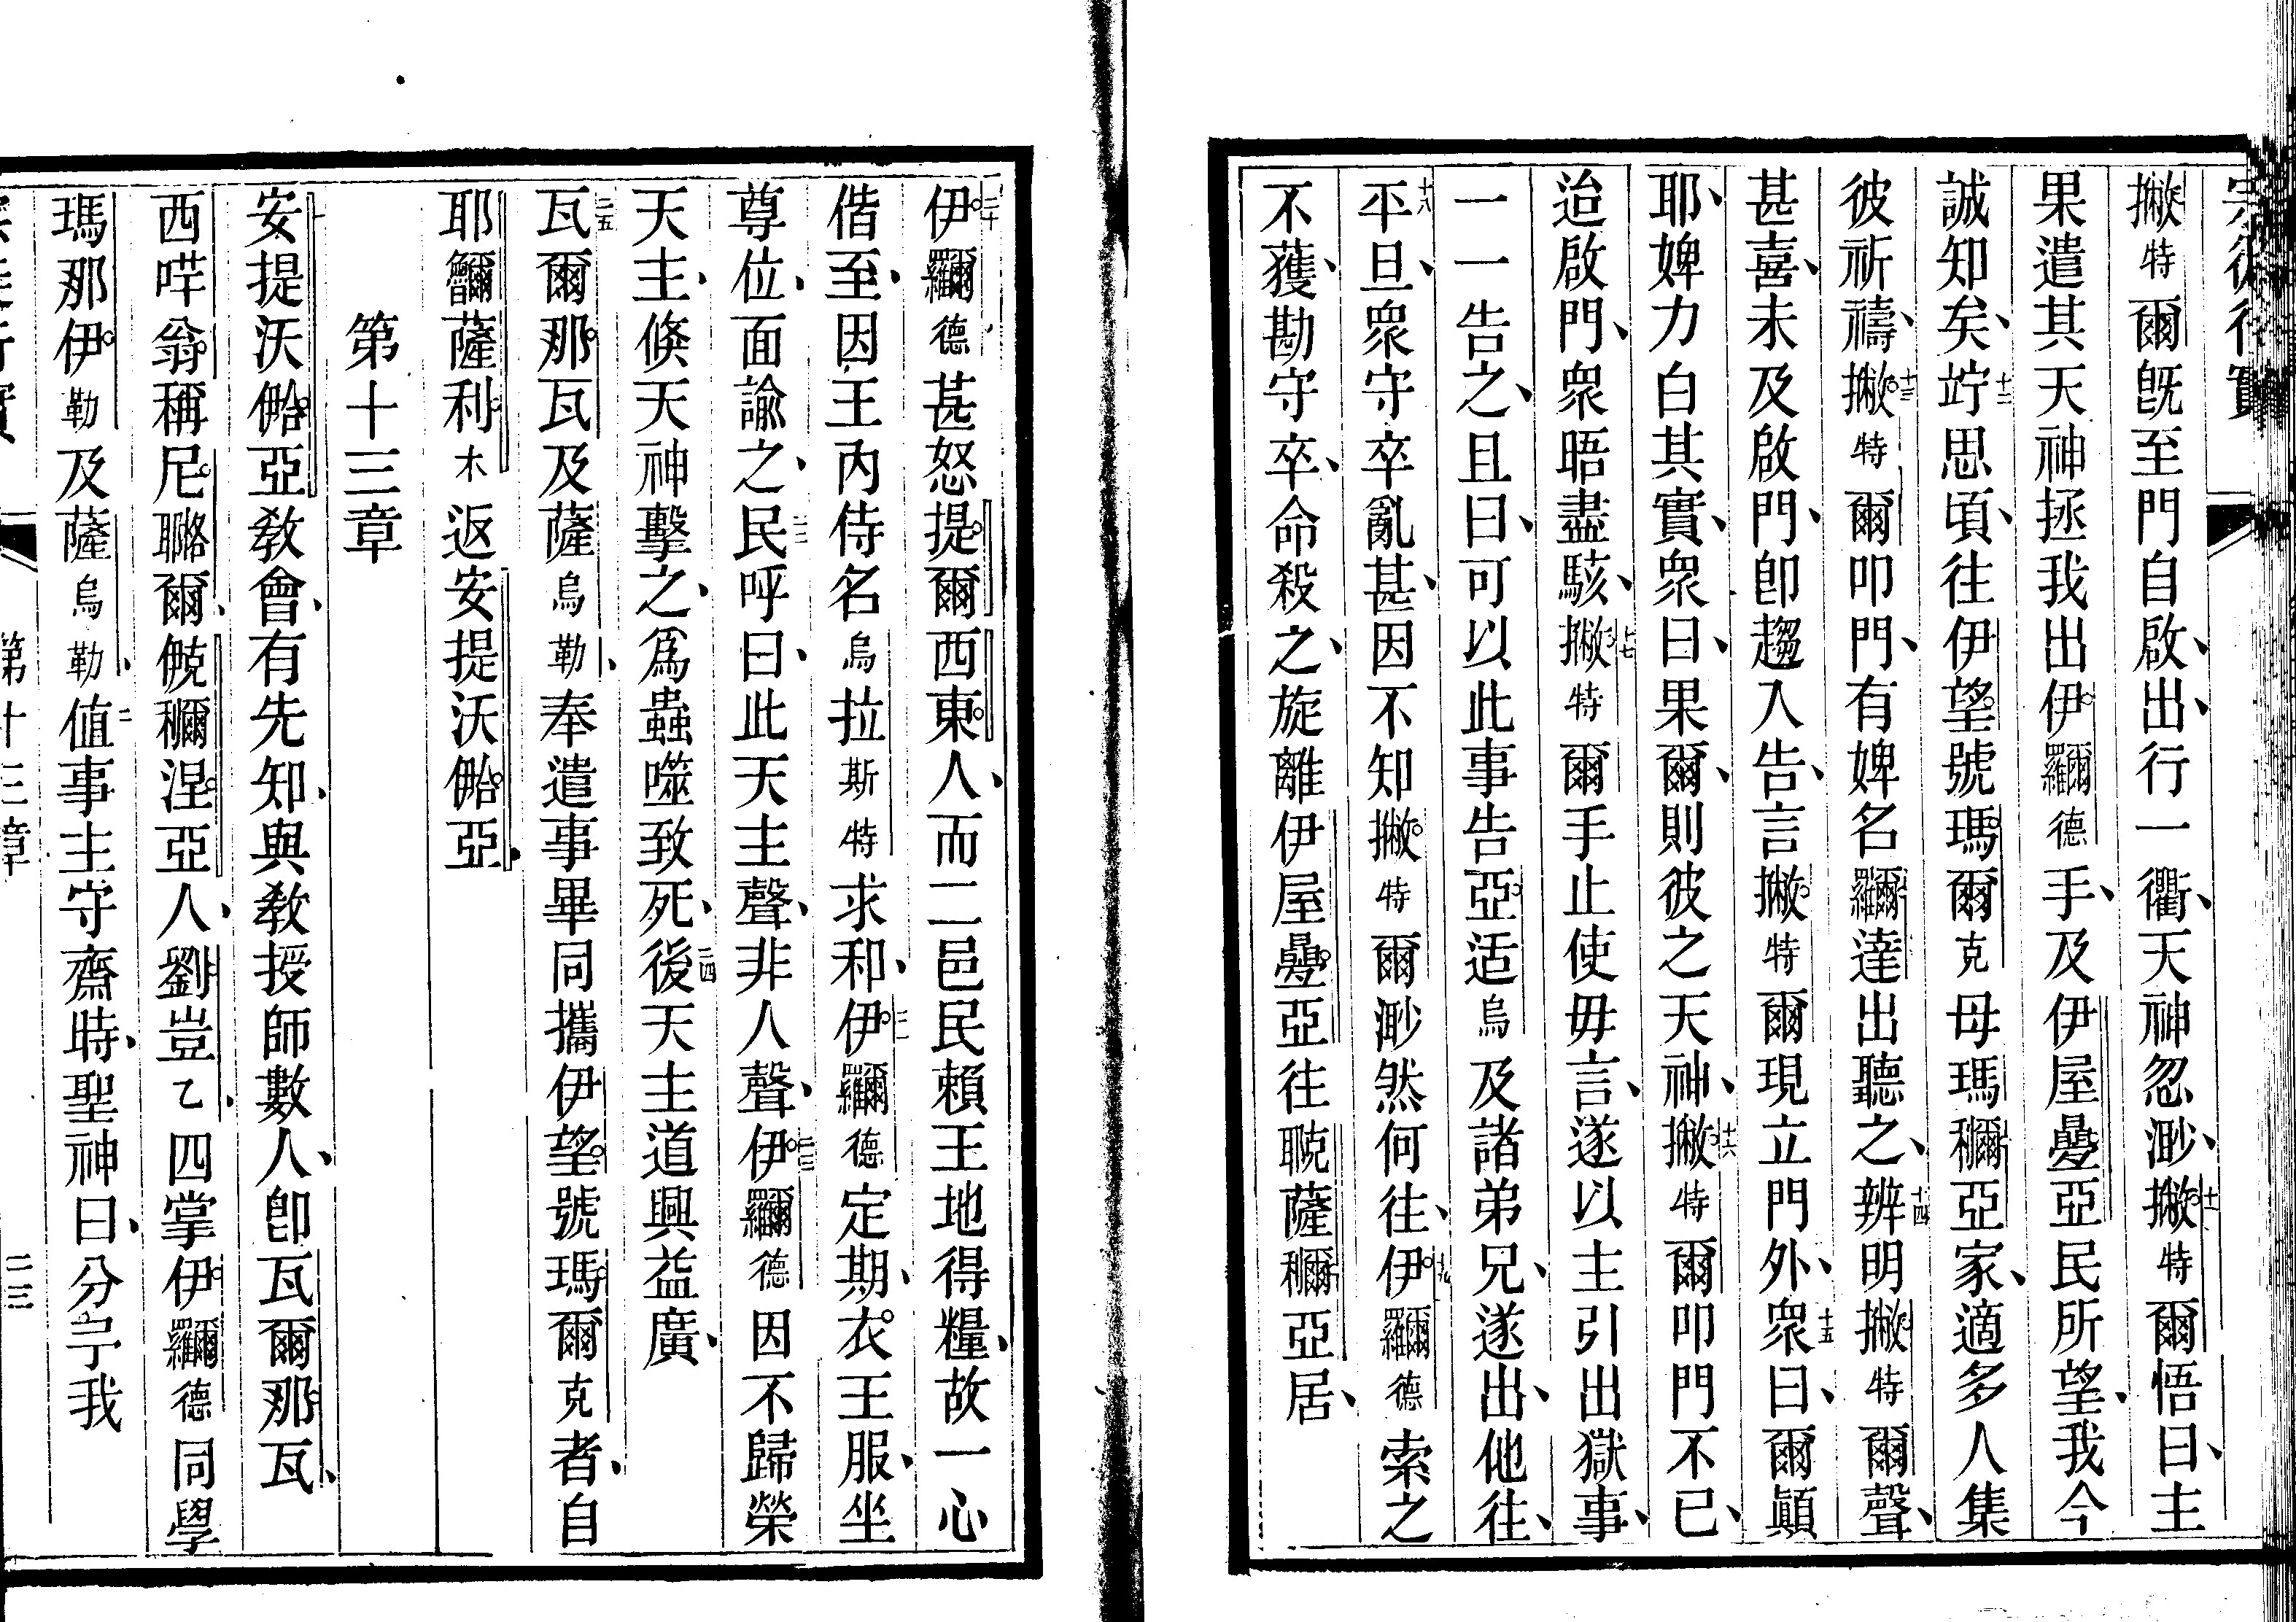 撇特爾旣至門自啟、出、行一衢、天神忽渺、十一撇特爾悟曰、主
果遣其天神拯我出伊羅爾德手、及伊屋疊亞民所望、我今
誠知矣、十二竚思頃、往伊望號瑪爾克母瑪穪亞家、適多人集
彼祈禱、十三撇特爾叩門、有婢名羅爾達出聽之、十四辨明撇特爾聲、
甚喜、未及啟門、卽趨入告、言撇特爾現立門外、十五衆曰、爾顚
耶、婢力白其實、衆曰、果爾、則彼之天神、十六撇特爾叩門不已、
迨啟門、衆晤盡駭、十七撇特爾手止使毋言、遂以主引出獄事、
一一告之、且曰、可以此事告亞适烏及諸弟兄、遂出、他往、
十八平旦、衆守卒亂甚、因不知撇特爾渺然何往、十九伊羅爾德索之
不獲、勘守卒、命殺之、旋離伊屋疊亞往薩穪亞居、
二十伊羅爾德甚怒提爾西東人、而二邑民賴王地得糧、故一心
偕至、因王內侍名烏拉斯特求和、二一伊羅爾德定期、衣王服、坐
尊位、面諭之、二二民呼曰、此天主聲、非人聲、二三伊羅爾德因不歸榮
天主、倏天神擊之、爲蟲噬致死、二四後天主道興益廣、
二五瓦爾那瓦及薩烏勒、奉遣事畢、同攜伊望號瑪爾克者、自
耶薩利木返安提沃亞、
第十三章
一安提沃亞敎會、有先知、與敎授師數人、卽瓦爾那瓦、
西翁稱尼爾、穪涅亞人、劉豈乙、四掌伊羅爾德同學
瑪那伊勒及薩烏勒、二值事主守齋時、聖神曰、分予我
第十三章
二三